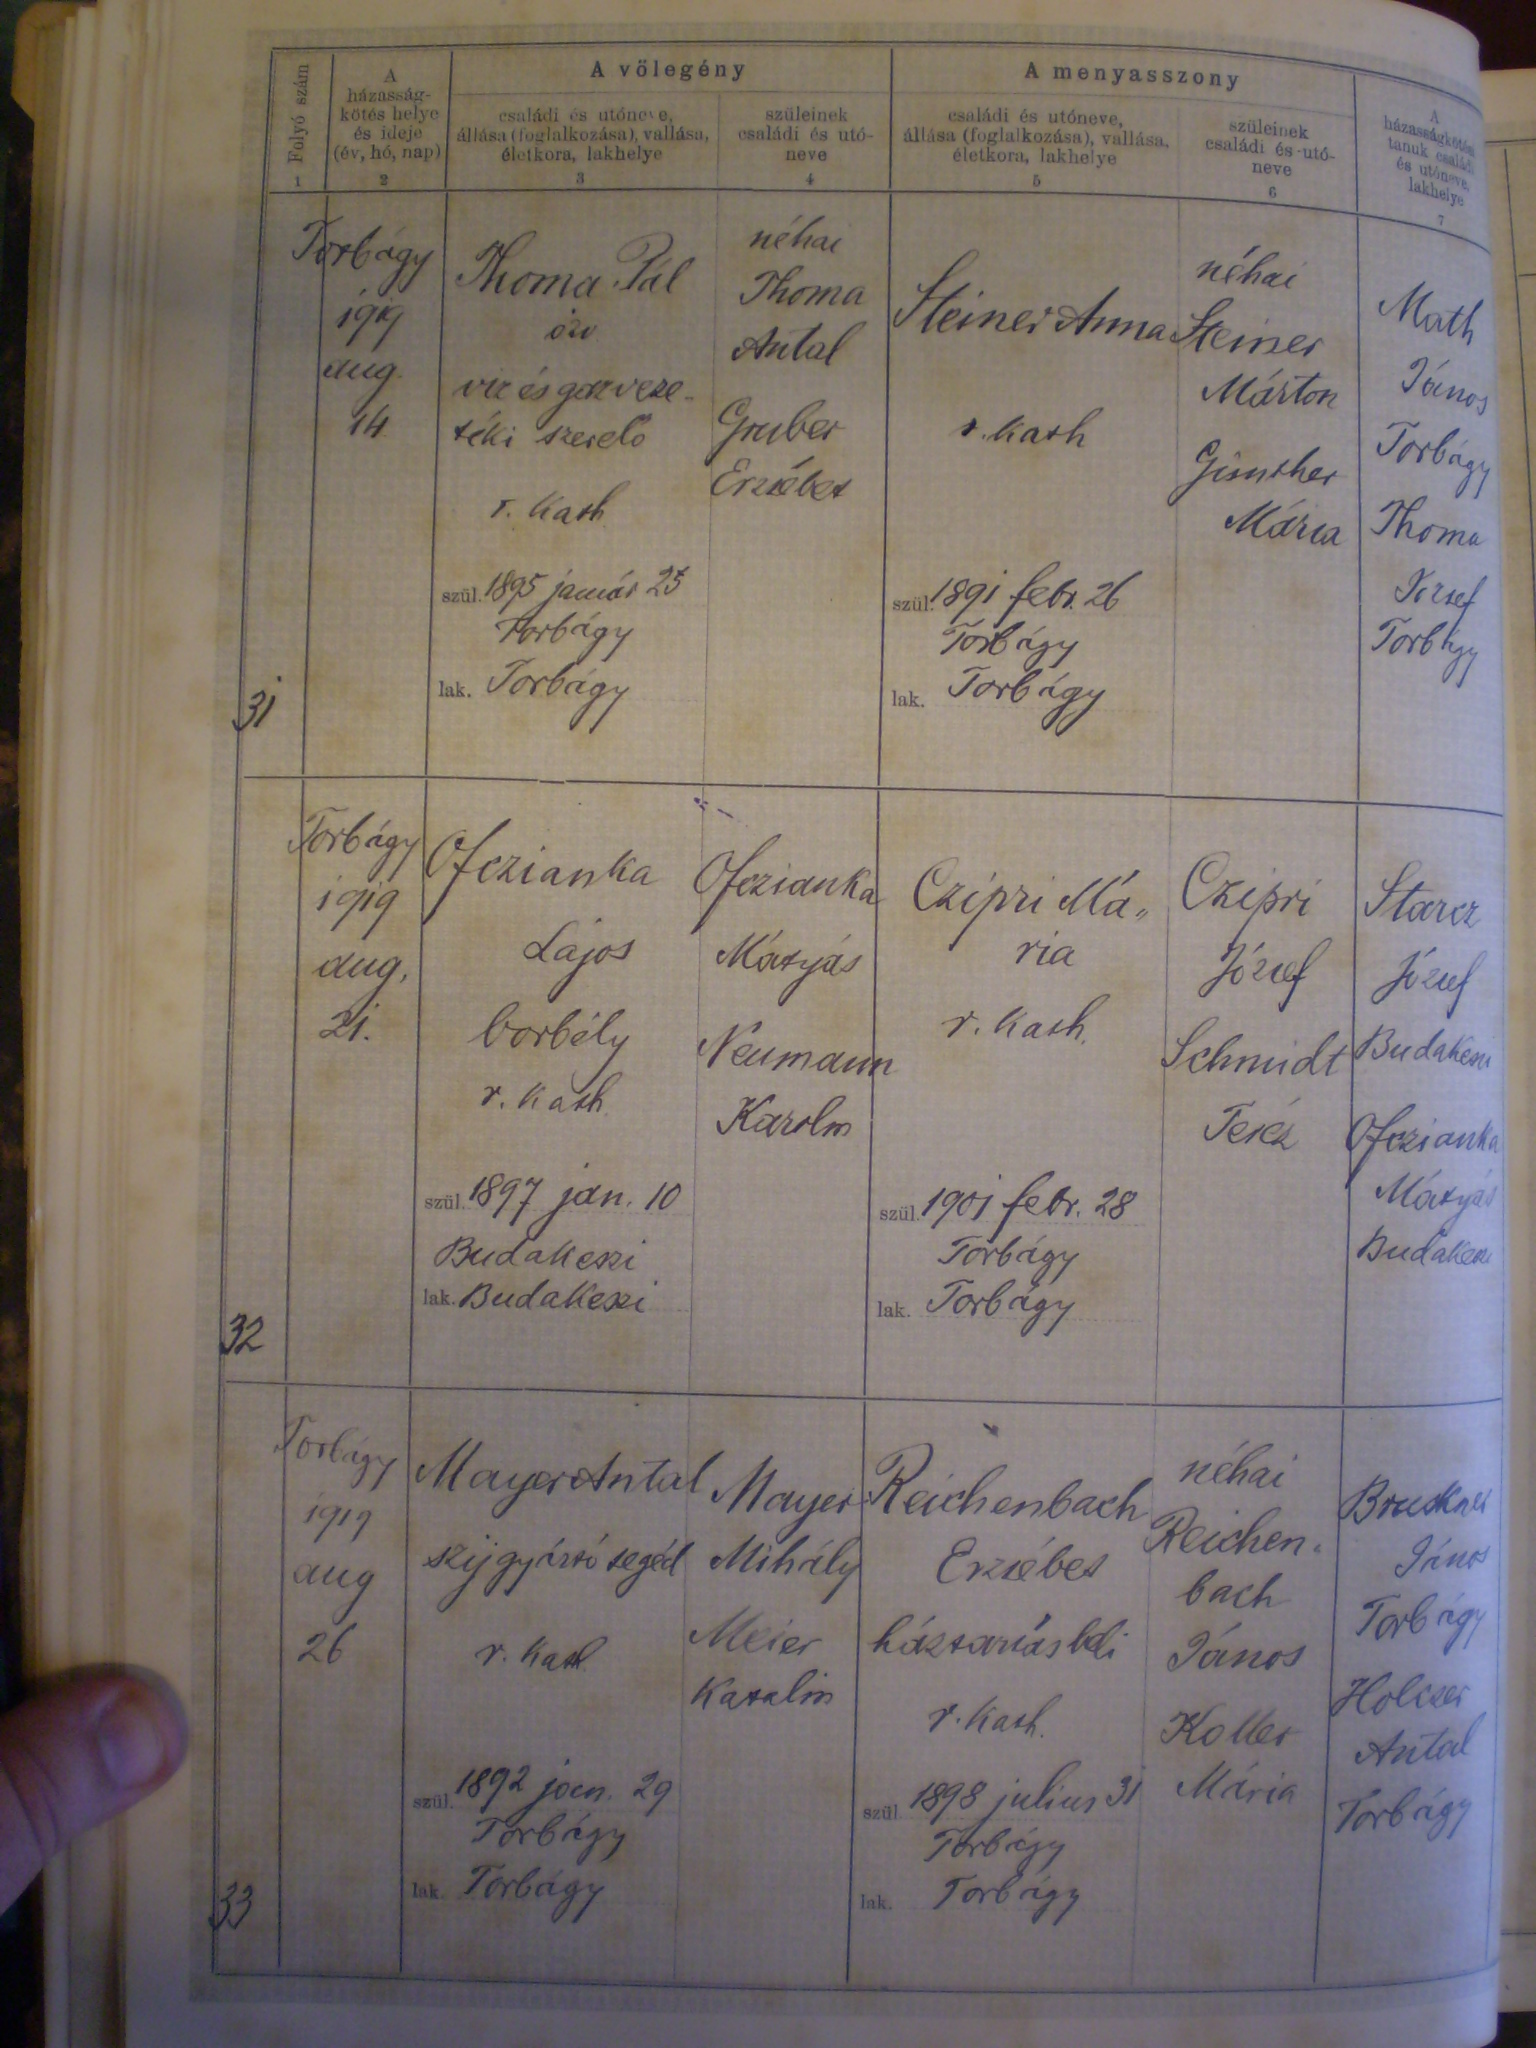 A vőlegény
A menyasszony
Folyó szám
A
házasság-
kötés helye
és ideje
(év, hó, nap)
családi és utóneve,
állása (foglalkozása), vallása,
életkora, lakhelye
szüleinek
családi és utó-
neve
családi és utóneve,
állása (foglalkozása), vallása,
életkora, lakhelye
szüleinek
családi és utó-
neve
A
házasságkötési
tanuk családi
és utóneve,
lakhelye
1
2
3
4
5
6
7
31
Torbágy
1919
aug.
14
Thoma Pál
víz és gázveze-
téki szerelő
r. Kath
szül. 1895 január 25
Torbágy
lak. Torbágy
néhai
Thoma
Antal
Gruber
Erzsébet
Steiner Anna
r. Kath
szül. 1891 febr. 26
Torbágy
lak. Torbágy
néhai
Steiner
Márton
Günther
Mária
Math
János
Torbágy
Thoma
József
Torbágy
32
Torbágy
1919
aug.
21.
Ofczianka
Lajos
borbély
r. Kath
szül. 1897 jan. 10
Budakeszi
lak. Budakeszi
Ofczianka
Mátyás
Neumann
Karolin
Czipri Má„
ria
r. Kath.
szül. 1901 febr. 28
Torbágy
lak. Torbágy
Czipri
József
Schmidt
Teréz
Starcz
József
Budakeszi
Ofczianka
Mátyás
Budakeszi
33
Torbágy
1919
aug
26
Mayer Antal
szijgyártó segéd
r. Kath
szül. 1892 jan. 29
Torbágy
lak. Torbágy
Mayer
Mihály
Meier
Katalin
Reichenbach
Erzsébet
háztartásbeli
r. Kath.
szül. 1898 julius 31
Torbágy
lak. Torbágy
néhai
Reichen„
bach
János
Koller
Mária
Bruckner
János
Torbágy
Holczer
Antal
Torbágy